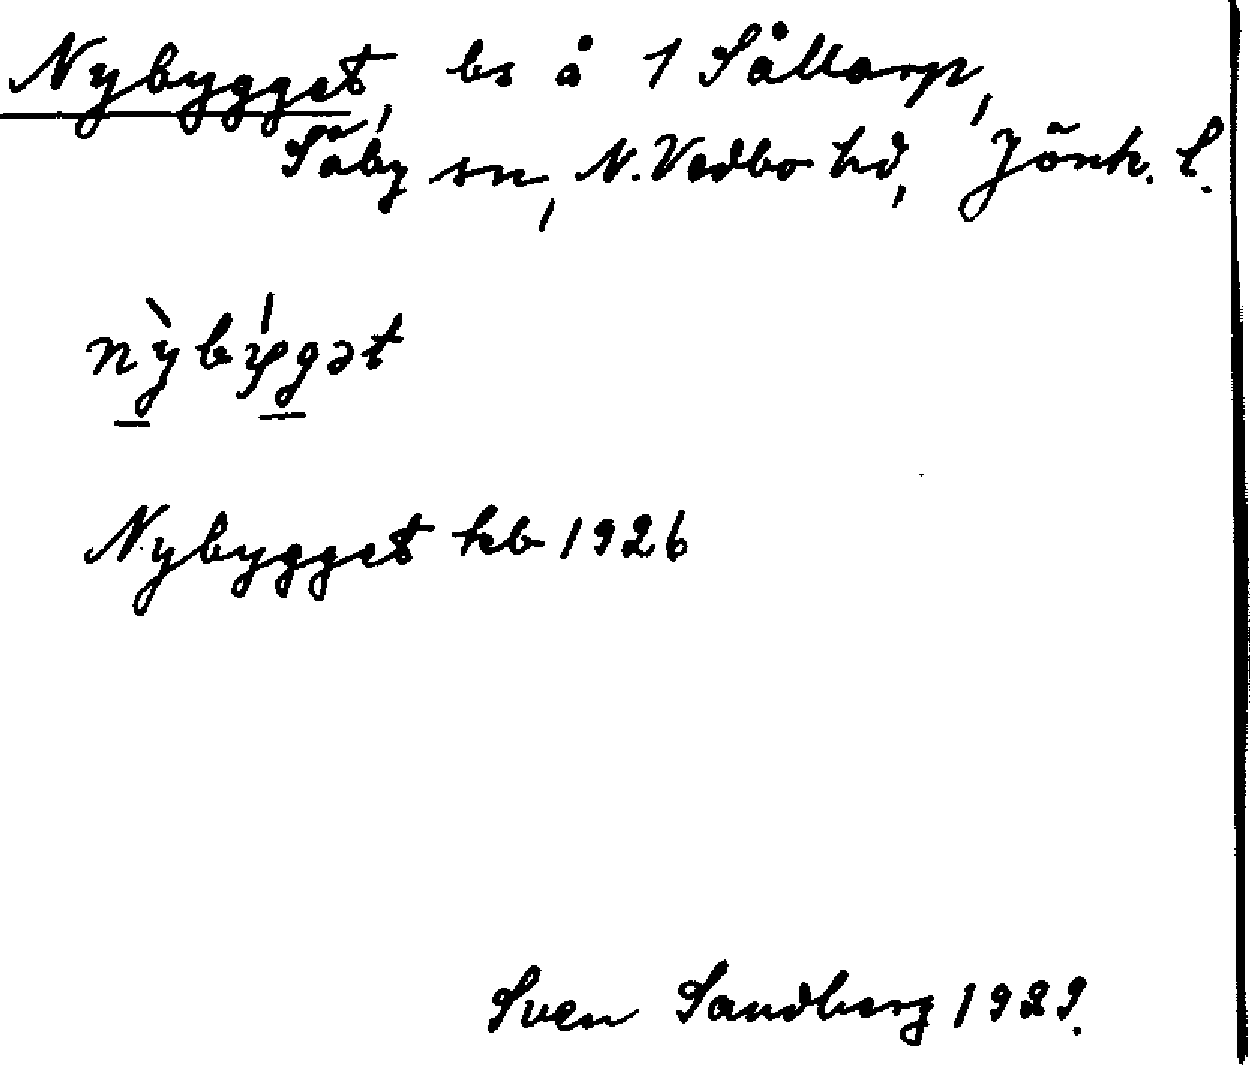 Nybygget, bs å 1 Sållarp,
Säby sn, N. Vedbo hd, Jönk. l.
nỳbýgət
Nybygget kb 1926
Sven Sandberg 1929.